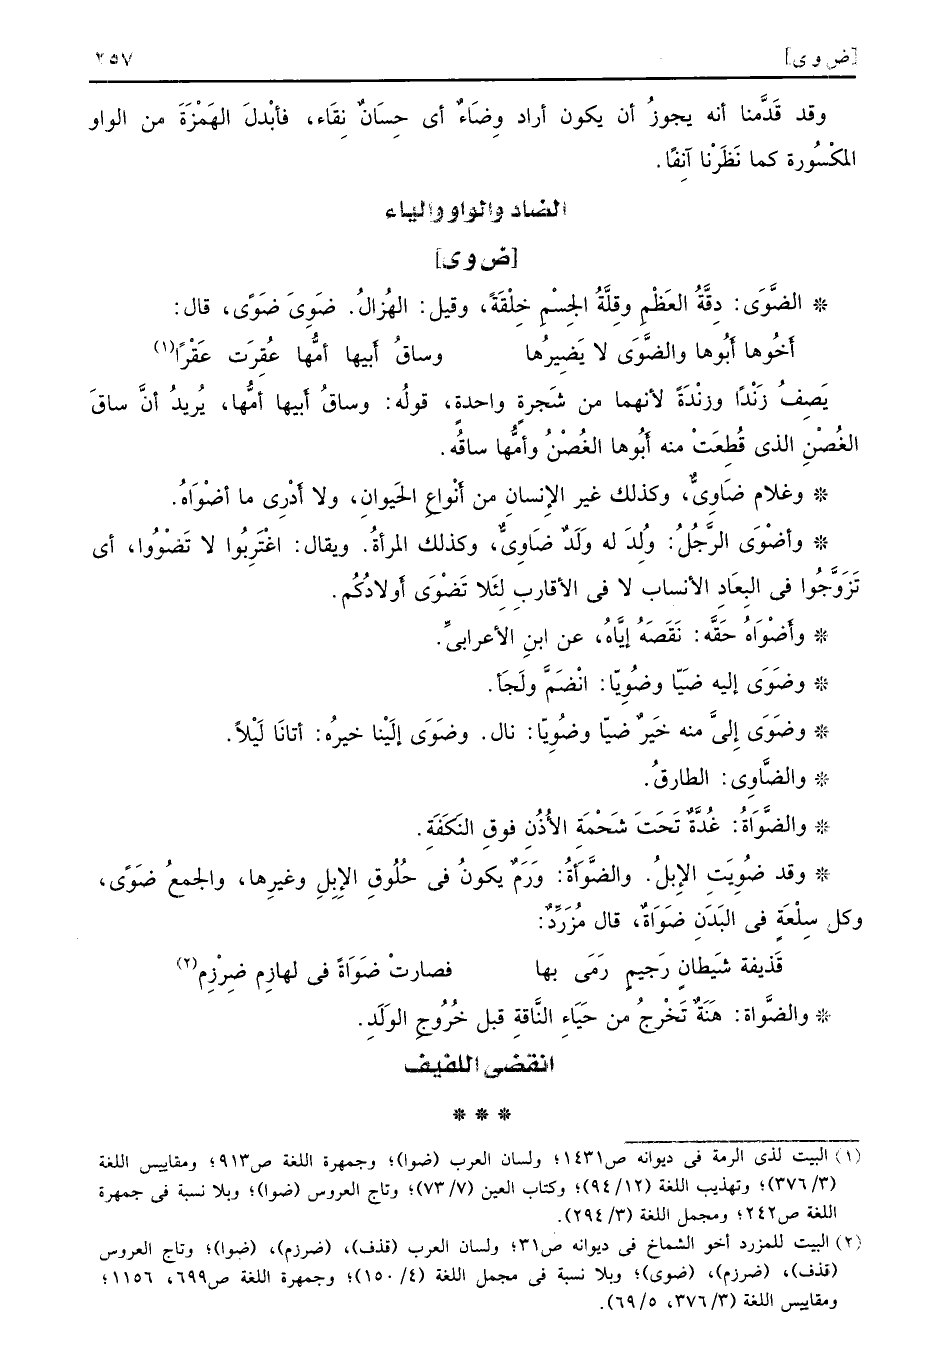 [ض و ى] ٢٥٧
وقد قَدَّمنا أنه يجوزُ أن يكون أراد وِضَاءٌ أى حِسَانٌ نِقَاء، فأبْدلَ الهَمْزَةَ من الواو
المكْسُورة كما نَظَرْنا آنِفًا.
الضاد والواو والياء
[ض و ى]
* الضَّوَى: دِقَّةُ العَظْمِ وقِلَّةُ الجِسْمِ خِلْقَةً، وقيل: الهُزالُ. ضَوِىَ ضَوًى، قال:
أخُوها أبُوها والضَّوَى لا يَضِيرُها وساقُ أبيها أمُّها عُقِرَت عَقْرًا(١)
يَصِفُ زَنْدًا وزنْدَةً لأنهما من شَجرةٍ واحدة، قولُه: وساقُ أبيها أمُّها، يُريدُ أنَّ ساقَ
الغُصْنِ الذى قُطِعَتْ منه أبُوها الغُصْنُ وأمُّها ساقُه.
* وغلام ضَاوِىٌّ، وكذلك غير الإنسانِ من أنْواعِ الحَيوانِ، ولا أدْرِى ما أضْوَاهُ.
* وأضْوَى الرَّجُلُ: وُلِدَ له ولَدٌ ضَاوِىٌّ، وكذلك المرأةُ. ويقال: اغْتَرِبُوا لا تَضْوُوا، أى
تَزَوَّجُوا فى البِعَادِ الأنساب لا فى الأقاربِ لئَلا تَضْوَى أولادُكُم.
* وأضْوَاهُ حَقَّه: نَقَصَهُ إيَّاهُ، عن ابنِ الأعرابىِّ.
* وضَوَى إليه ضَيّا وضُوِيّا: انْضَمَّ ولَجَأ.
* وضَوَى إلىَّ منه خَيرٌ ضيّا وضُوِيّا: نال. وضَوَى إلَيْنا خيرهُ: أتانَا لَيْلاً.
* والضَّاوِى: الطارقُ.
* والضَّوَاةُ: غُدَّةٌ تَحَتَ شَحْمةِ الأُذُنِ فوق النَكَفَةِ.
* وقد ضُوِيَتِ الإبلُ. والضَّوَأةُ: ورَمٌ يكونُ فى حلُوقِ الإبِلِ وغيرِها، والجمعُ ضَوًى،
وكل سِلْعَةٍ فى البَدَنِ ضَوَاةٌ، قال مُزَرِّدٌ:
قَذيفة شَيطانٍ رَجيمٍ رَمَى بها فصارتْ ضَوَاةً فى لهازِمِ ضِرْزِم(٢)
* والضَّواة: هَنَةٌ تَخْرجُ من حَيَاءِ النَّاقةِ قبل خُرُوجِ الوَلَدِ.
انقضى اللفيف
* * *
(١) البيت لذى الرمة فى ديوانه ص١٤٣١؛ ولسان العرب (ضوا)؛ وجمهرة اللغة ص٩١٣؛ ومقاييس اللغة
(٣/ ٣٧٦)؛ وتهذيب اللغة (١٢/ ٩٤)؛ وكتاب العين (٧/ ٧٣)؛ وتاج العروس (ضوا)؛ وبلا نسبة فى جمهرة
اللغة ص٢٤٢؛ ومجمل اللغة (٣/ ٢٩٤).
(٢) البيت للمزرد أخو الشماخ فى ديوانه ص٣١؛ ولسان العرب (قذف)، (ضرزم)، (ضوا)؛ وتاج العروس
(قذف)، (ضرزم)، (ضوى)؛ وبلا نسبة فى مجمل اللغة (٤/ ١٥٠)؛ وجمهرة اللغة ص٦٩٩، ١١٥٦؛
ومقاييس اللغة (٣/ ٣٧٦، ٥/ ٦٩).